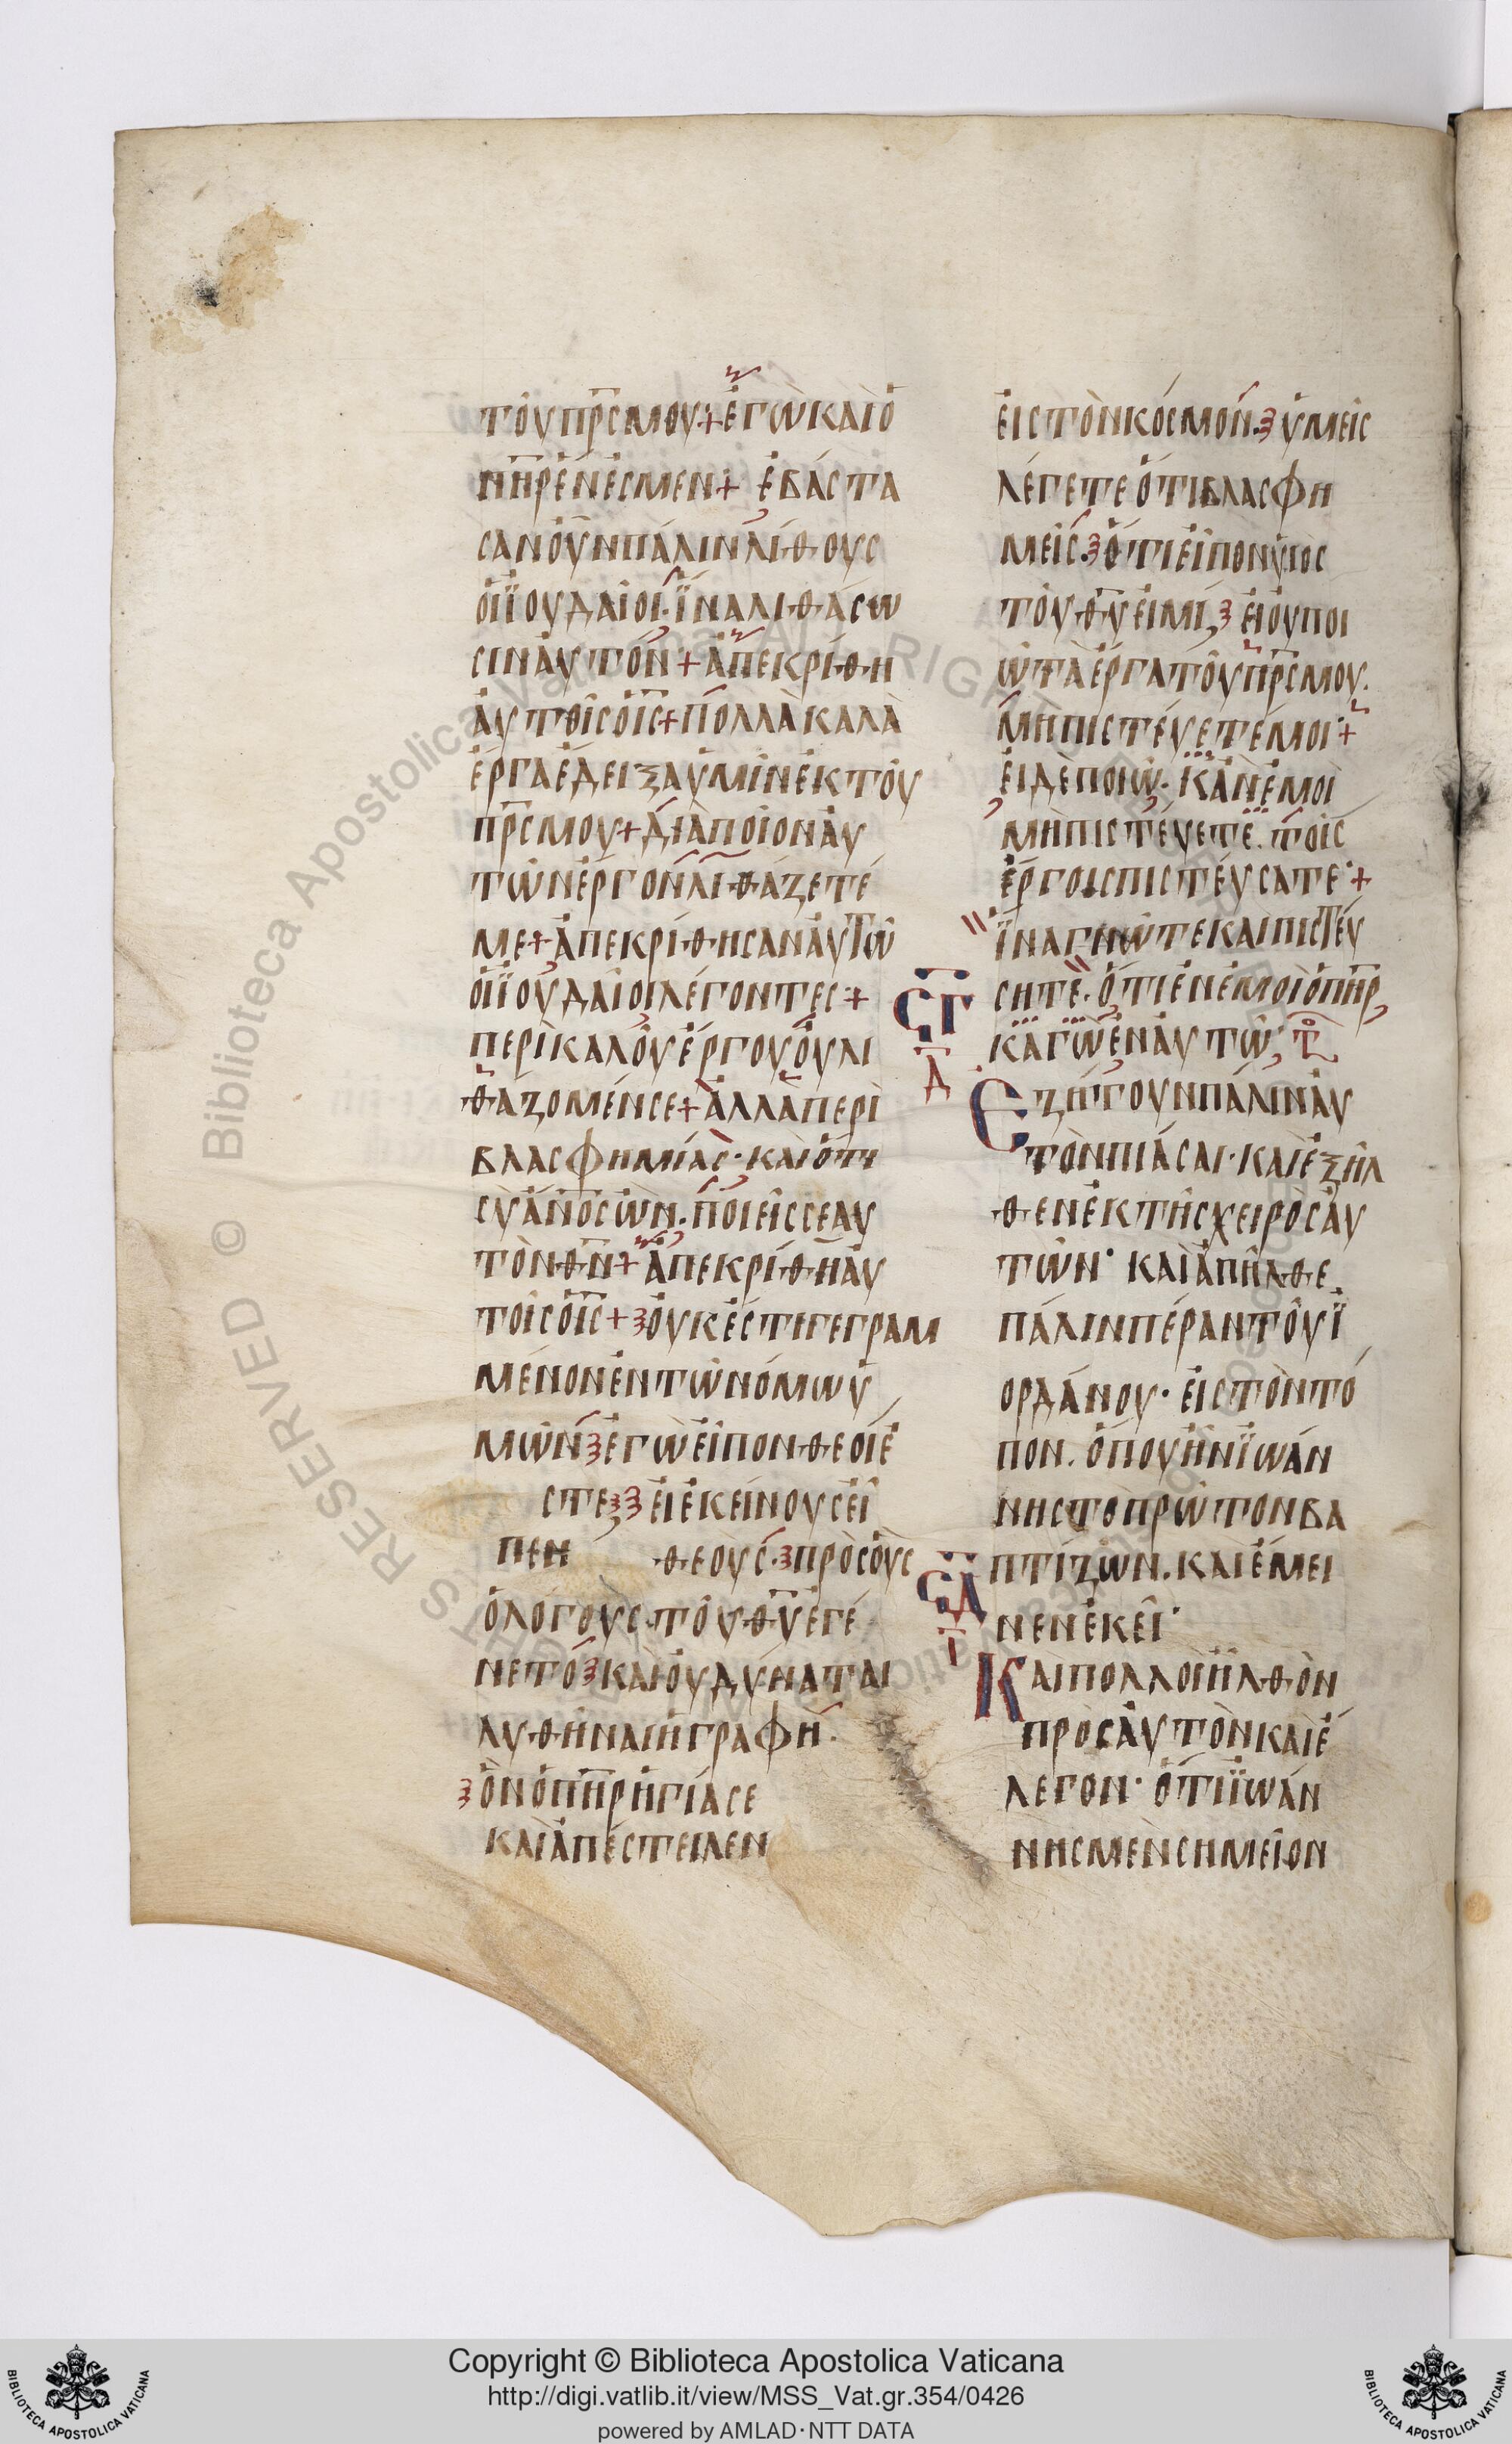 ΤΟΥΠΡΣΜΟΥ+ΕΓΩΚΑΙΟ
ΠΗΡΕΝΕΣΜΕΝ+ ΕΒΑΣΤΑ
ΣΑΝΟΥΝΠΑΛΙΝΛΙΘΟΥΣ
ΟΙΪΟΥΔΑΙΟΙ·ΪΝΑΛΙΘΑΣΩ
ΣΙΝΑΥΤΟΝ+ΑΠΕΚΡΙΘΗ
ΑΥΤΟΙΣΟΙΣ+ΠΟΛΛΑΚΑΛΑ
ΕΡΓΑΕΔΕΙΞΑΥΜΙΝΕΚΤΟΥ
ΠΡΣΜΟΥ+ΔΙΑΠΟΙΟΝΑΥ
ΤΩΝΕΡΓΟΝΛΙΘΑΖΕΤΕ
ΜΕ+ΑΠΕΚΡΙΘΗΣΑΝΑΥΤΩ
ΟΙΪΟΥΔΑΙΟΙΛΕΓΟΝΤΕΣ+
ΠΕΡΙΚΑΛΟΥΕΡΓΟΥΟΥΛΙ
ΘΑΖΟΜΕΝΣΕ+ΑΛΛΑΠΕΡΙ
ΒΛΑΣΦΗΜΙΑΣ·ΚΑΙΟΤΙ
ΣΥΑΝΟΣΩΝ·ΠΟΙΕΙΣΣΕΑΥ
ΤΟΝΘΝ+ΑΠΕΚΡΙΘΗΑΥ
ΤΟΙΣΟΙΣ+ΟΥΚΕΣΤΙΓΕΓΡΑΜ
ΜΕΝΟΝΕΝΤΩΝΟΜΩΥ
ΜΩΝΕΓΩΕΙΠΟΝΘΕΟΙΕ
ΣΤΕ ΕΙΕΚΕΙΝΟΥΣΕΙ
ΠΕΝ ΘΕΟΥΣ·ΠΡΟΣΟΥΣ
ΟΛΟΓΟΥΣ·ΤΟΥΘΥΕΓΕ
ΝΕΤΟΚΑΙΟΥΔΥΝΑΤΑΙ
ΛΥΘΗΝΑΙΗΓΡΑΦΗ·
ΟΝΟΠΗΡΗΓΙΑΣΕ
ΚΑΙΑΠΕΣΤΕΙΛΕΝ
ΕΙΣΤΟΝΚΟΣΜΟΝ·ΥΜΕΙΣ
ΛΕΓΕΤΕΟΤΙΒΛΑΣΦΗ
ΜΕΙΣ·ΟΤΙΕΙΠΟΝΥΙΟΣ
ΤΟΥΘΥΕΙΜΙ, ΕΙΟΥΠΟΙ
ΩΤΑΕΡΓΑΤΟΥΠΡΣΜΟΥ·
ΜΗΠΙΣΤΕΥΕΤΕΜΟΙ+
ΕΙΔΕΠΟΙΩ·ΚΑΝΕΜΟΙ
ΜΗΠΙΣΤΕΥΕΤΕ·ΤΟΙΣ
ΕΡΓΟΙΣΠΙΣΤΕΥΣΑΤΕ+
ΪΝΑΓΝΩΤΕΚΑΙΠΙΣΤΕΥ
ϚΓ
ΣΗΤΕ·ΟΤΙΕΝΕΜΟΙΟΠΗΡ
Δ
ΚΑΓΩΕΝΑΥΤΩ·
ΕΖΗΤΟΥΝΠΑΛΙΝΑΥ
ΤΟΝΠΙΑΣΑΙ·ΚΑΙΕΞΗΛ
ΘΕΝΕΚΤΗΣΧΕΙΡΟΣΑΥ
ΤΩΝ· ΚΑΙΑΠΗΛΘΕ
ΠΑΛΙΝΠΕΡΑΝΤΟΥΪ
ΟΡΔΑΝΟΥ· ΕΙΣΤΟΝΤΟ
ΠΟΝ·ΟΠΟΥΗΝΪΩΑΝ
ΝΗΣΤΟΠΡΩΤΟΝΒΑ
ΠΤΙΖΩΝ·ΚΑΙΕΜΕΙ
ϚΔ
Ι
ΝΕΝΕΚΕΙ·
ΚΑΙΠΟΛΛΟΙΗΛΘΟΝ
ΠΡΟΣΑΥΤΟΝΚΑΙΕ
ΛΕΓΟΝ·ΟΤΙΪΩΑΝ
ΝΗΣΜΕΝΣΗΜΕΙΟΝ
© Biblioteca Apostolica Vaticana ALL RIGHTS RESERVED
Copyright © Biblioteca Apostolica Vaticana
http://digi.vatlib.it/view/MSS_Vat.gr.354/0426
powered by AMLAD·NTT DATA
BIBLIOTECA APOSTOLICA VATICANA
BIBLIOTECA APOSTOLICA VATICANA